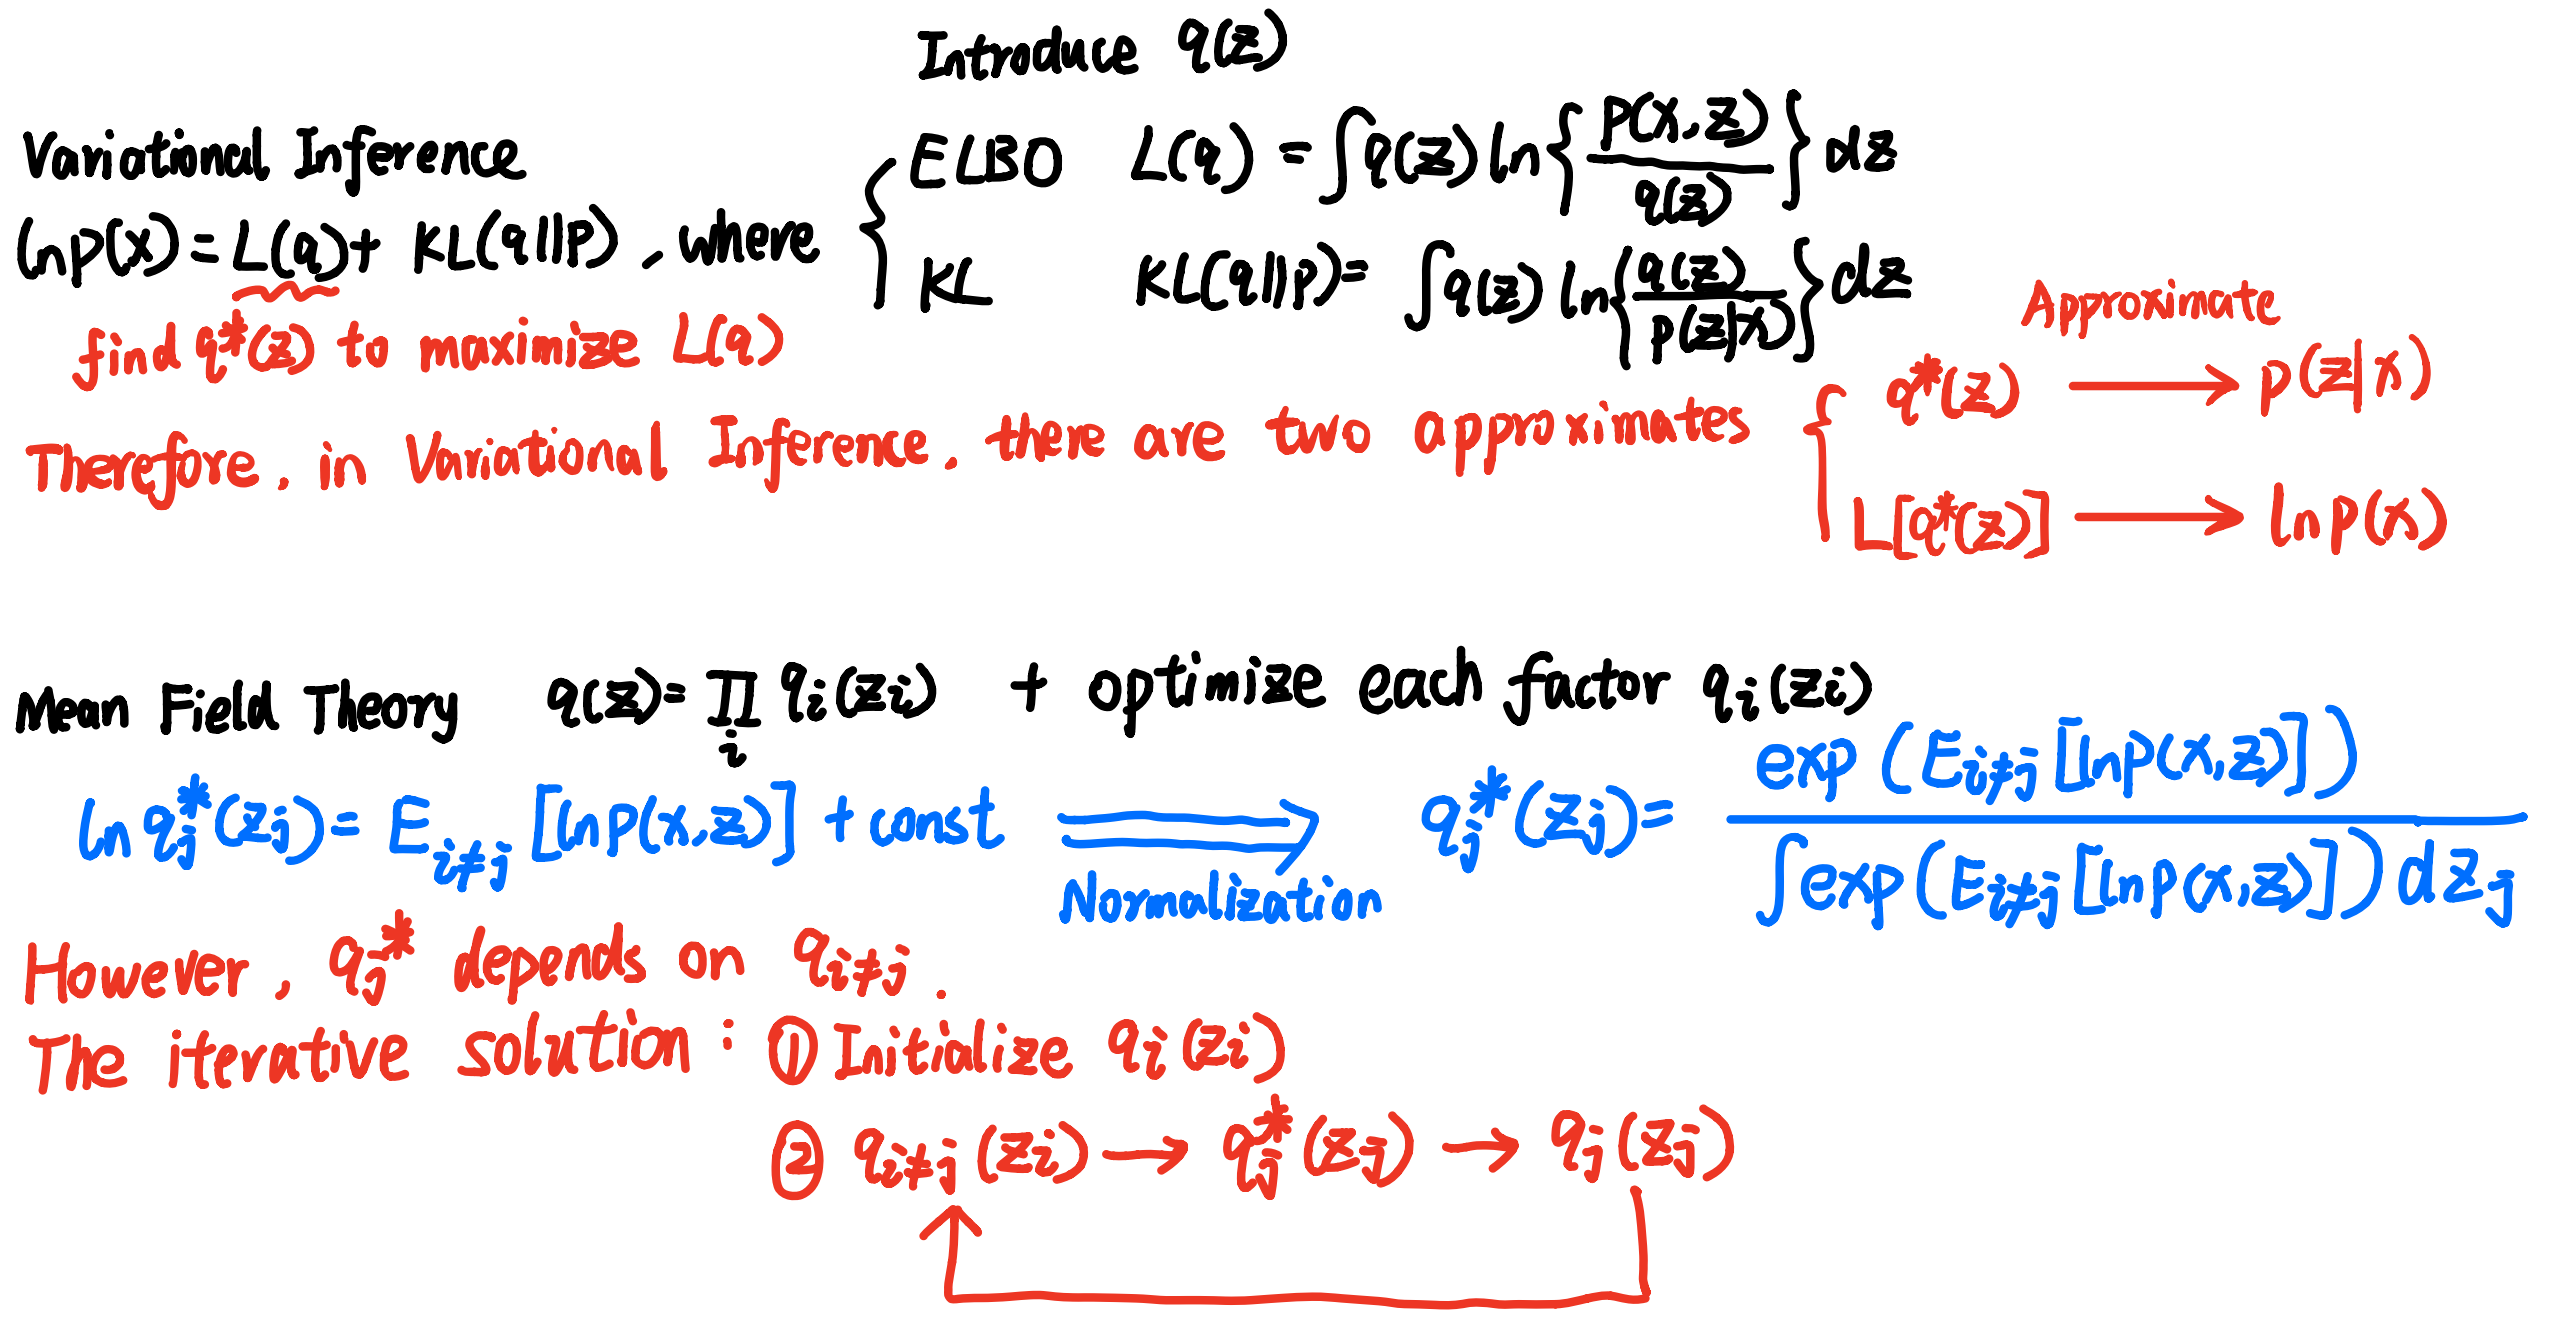 Introduce q(z)
Variational Inference
ln p(x) = L(q) + KL(q||p), where
ELBO L(q) = ∫q(z) ln{p(x,z)/q(z)}dz
KL KL(q||p) = ∫q(z) ln{q(z)/p(z|x)}dz
find q*(z) to maximize L(q)
Approximate
Therefore, in Variational Inference, there are two approximates
q*(z) → p(z|x)
L[q*(z)] → ln p(x)
Mean Field Theory q(z) = ∏_i q_i(z_i) + optimize each factor q_i(z_i)
ln q_j*(z_j) = E_{i≠j}[ln p(x,z)] + const ⇒ q_j*(z_j) = exp(E_{i≠j}[ln p(x,z)]) / ∫exp(E_{i≠j}[ln p(x,z)])dz_j
Normalization
However, q_j* depends on q_{i≠j}.
The iterative solution: ① Initialize q_i(z_i)
② q_{i≠j}(z_i) → q_j*(z_j) → q_j(z_j)